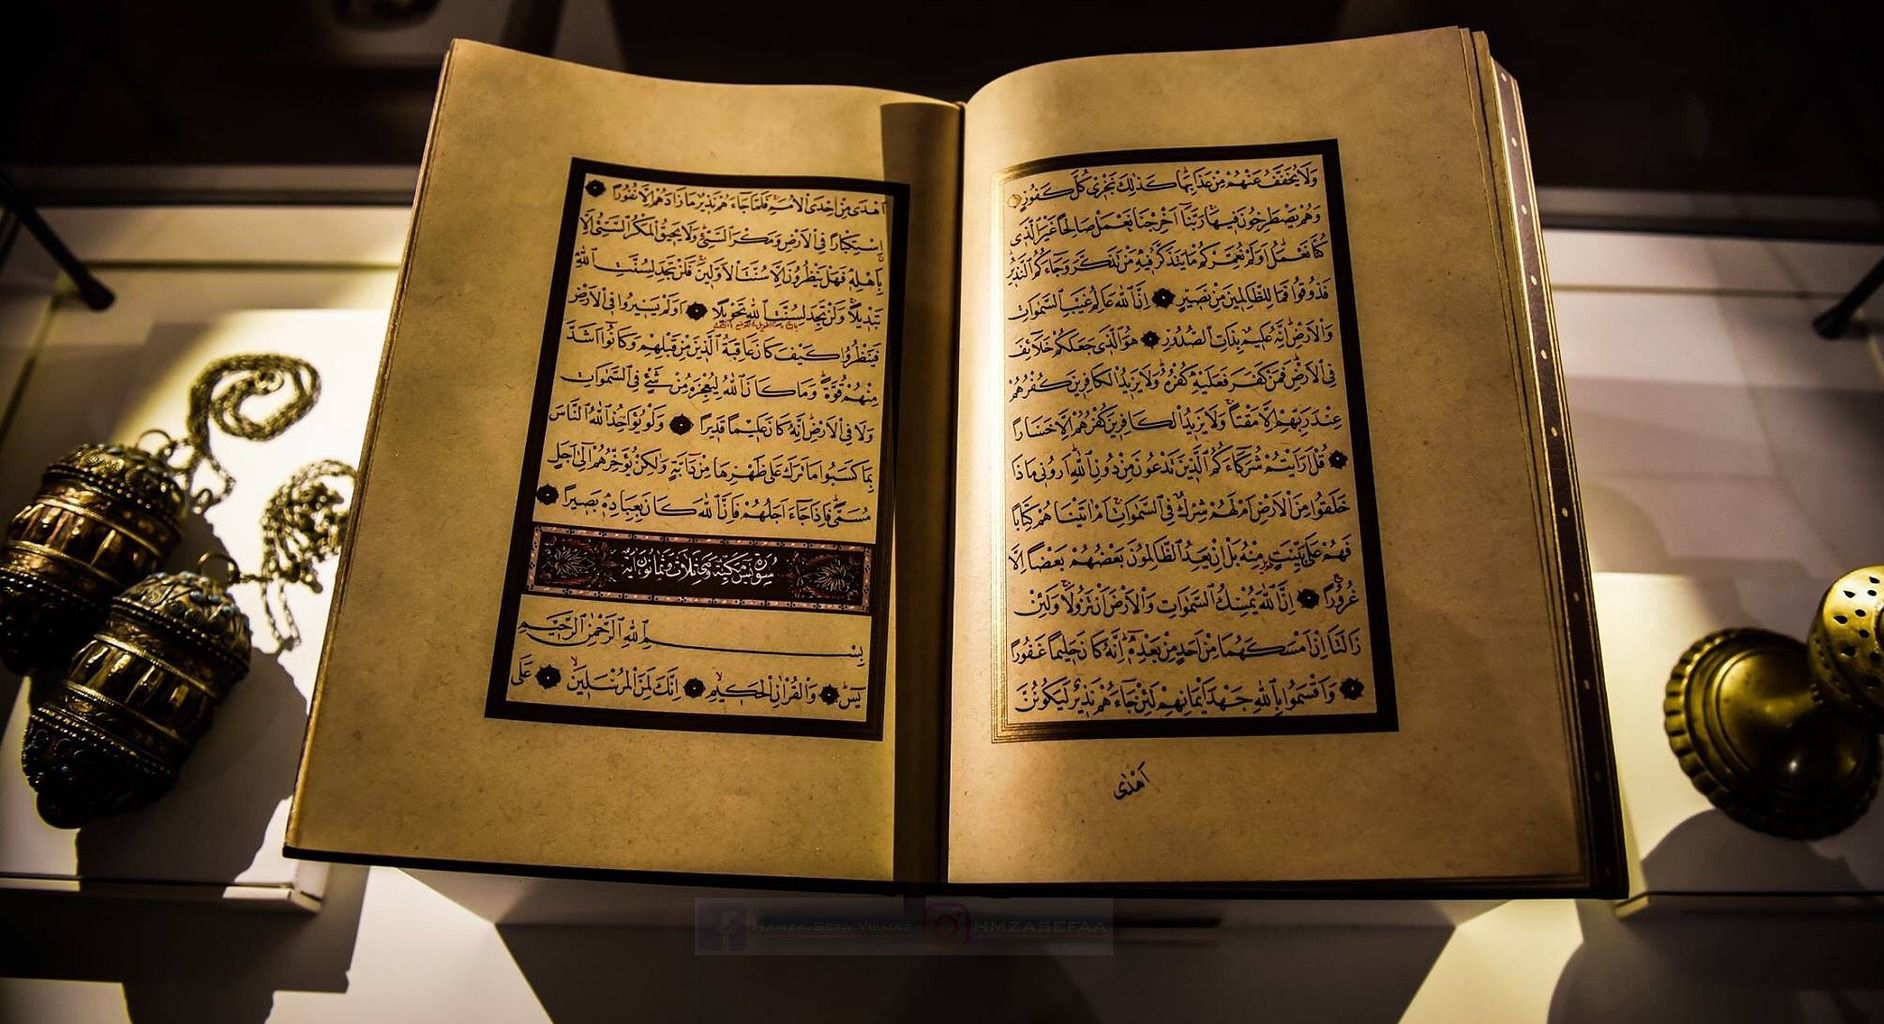 وَلَا يُخَفَّفُ عَنْهُمْ مِنْ عَذَابِهَا كَذٰلِكَ نَجْزِى كُلَّ كَفُورٍ
وَهُمْ يَصْطَرِخُونَ فِيهَا رَبَّنَا اَخْرِجْنَا نَعْمَلْ صَالِحًا غَيْرَ الَّذِى
كُنَّا نَعْمَلُ اَوَلَمْ نُعَمِّرْكُمْ مَا يَتَذَكَّرُ فِيهِ مَنْ تَذَكَّرَ وَجَاءَكُمُ النَّذِيرُ
فَذُوقُوا فَمَا لِلظَّالِمِينَ مِنْ نَصِيرٍ اِنَّ اللّٰهَ عَالِمُ غَيْبِ السَّمٰوَاتِ
وَالْاَرْضِ اِنَّهُ عَلِيمٌ بِذَاتِ الصُّدُورِ هُوَ الَّذِى جَعَلَكُمْ خَلَائِفَ
فِى الْاَرْضِ فَمَنْ كَفَرَ فَعَلَيْهِ كُفْرُهُ وَلَا يَزِيدُ الْكَافِرِينَ كُفْرُهُمْ
عِنْدَ رَبِّهِمْ اِلَّا مَقْتًا وَلَا يَزِيدُ الْكَافِرِينَ كُفْرُهُمْ اِلَّا خَسَارًا
قُلْ اَرَاَيْتُمْ شُرَكَاءَكُمُ الَّذِينَ تَدْعُونَ مِنْ دُونِ اللّٰهِ اَرُونِى مَاذَا
خَلَقُوا مِنَ الْاَرْضِ اَمْ لَهُمْ شِرْكٌ فِى السَّمٰوَاتِ اَمْ اٰتَيْنَاهُمْ كِتَابًا
فَهُمْ عَلٰى بَيِّنَتٍ مِنْهُ بَلْ اِنْ يَعِدُ الظَّالِمُونَ بَعْضُهُمْ بَعْضًا اِلَّا
غُرُورًا اِنَّ اللّٰهَ يُمْسِكُ السَّمٰوَاتِ وَالْاَرْضَ اَنْ تَزُولَا وَلَئِنْ
زَالَتَا اِنْ اَمْسَكَهُمَا مِنْ اَحَدٍ مِنْ بَعْدِهِ اِنَّهُ كَانَ حَلِيمًا غَفُورًا
وَاَقْسَمُوا بِاللّٰهِ جَهْدَ اَيْمَانِهِمْ لَئِنْ جَاءَهُمْ نَذِيرٌ لَيَكُونُنَّ
اَهْدٰى
اَهْدٰى مِنْ اِحْدَى الْاُمَمِ فَلَمَّا جَاءَهُمْ نَذِيرٌ مَا زَادَهُمْ اِلَّا نُفُورًا
اِسْتِكْبَارًا فِى الْاَرْضِ وَمَكْرَ السَّيِّئِ وَلَا يَحِيقُ الْمَكْرُ السَّيِّئُ اِلَّا
بِاَهْلِهِ فَهَلْ يَنْظُرُونَ اِلَّا سُنَّتَ الْاَوَّلِينَ فَلَنْ تَجِدَ لِسُنَّتِ اللّٰهِ
تَبْدِيلًا وَلَنْ تَجِدَ لِسُنَّتِ اللّٰهِ تَحْوِيلًا اَوَلَمْ يَسِيرُوا فِى الْاَرْضِ
فَيَنْظُرُوا كَيْفَ كَانَ عَاقِبَةُ الَّذِينَ مِنْ قَبْلِهِمْ وَكَانُوا اَشَدَّ
مِنْهُمْ قُوَّةً وَمَا كَانَ اللّٰهُ لِيُعْجِزَهُ مِنْ شَيْءٍ فِى السَّمٰوَاتِ
وَلَا فِى الْاَرْضِ اِنَّهُ كَانَ عَلِيمًا قَدِيرًا وَلَوْ يُؤَاخِذُ اللّٰهُ النَّاسَ
بِمَا كَسَبُوا مَا تَرَكَ عَلٰى ظَهْرِهَا مِنْ دَابَّةٍ وَلٰكِنْ يُؤَخِّرُهُمْ اِلٰى اَجَلٍ
مُسَمًّى فَاِذَا جَاءَ اَجَلُهُمْ فَاِنَّ اللّٰهَ كَانَ بِعِبَادِهِ بَصِيرًا
سُورَةُ يٰسٓ مَكِّيَّةٌ وَهِىَ ثَلَاثٌ وَثَمَانُونَ اٰيَةً
بِسْمِ اللّٰهِ الرَّحْمٰنِ الرَّحِيمِ
يٰسٓ وَالْقُرْاٰنِ الْحَكِيمِ اِنَّكَ لَمِنَ الْمُرْسَلِينَ عَلٰى
HAMZA SEFA YILMAZ HMZASEFAA